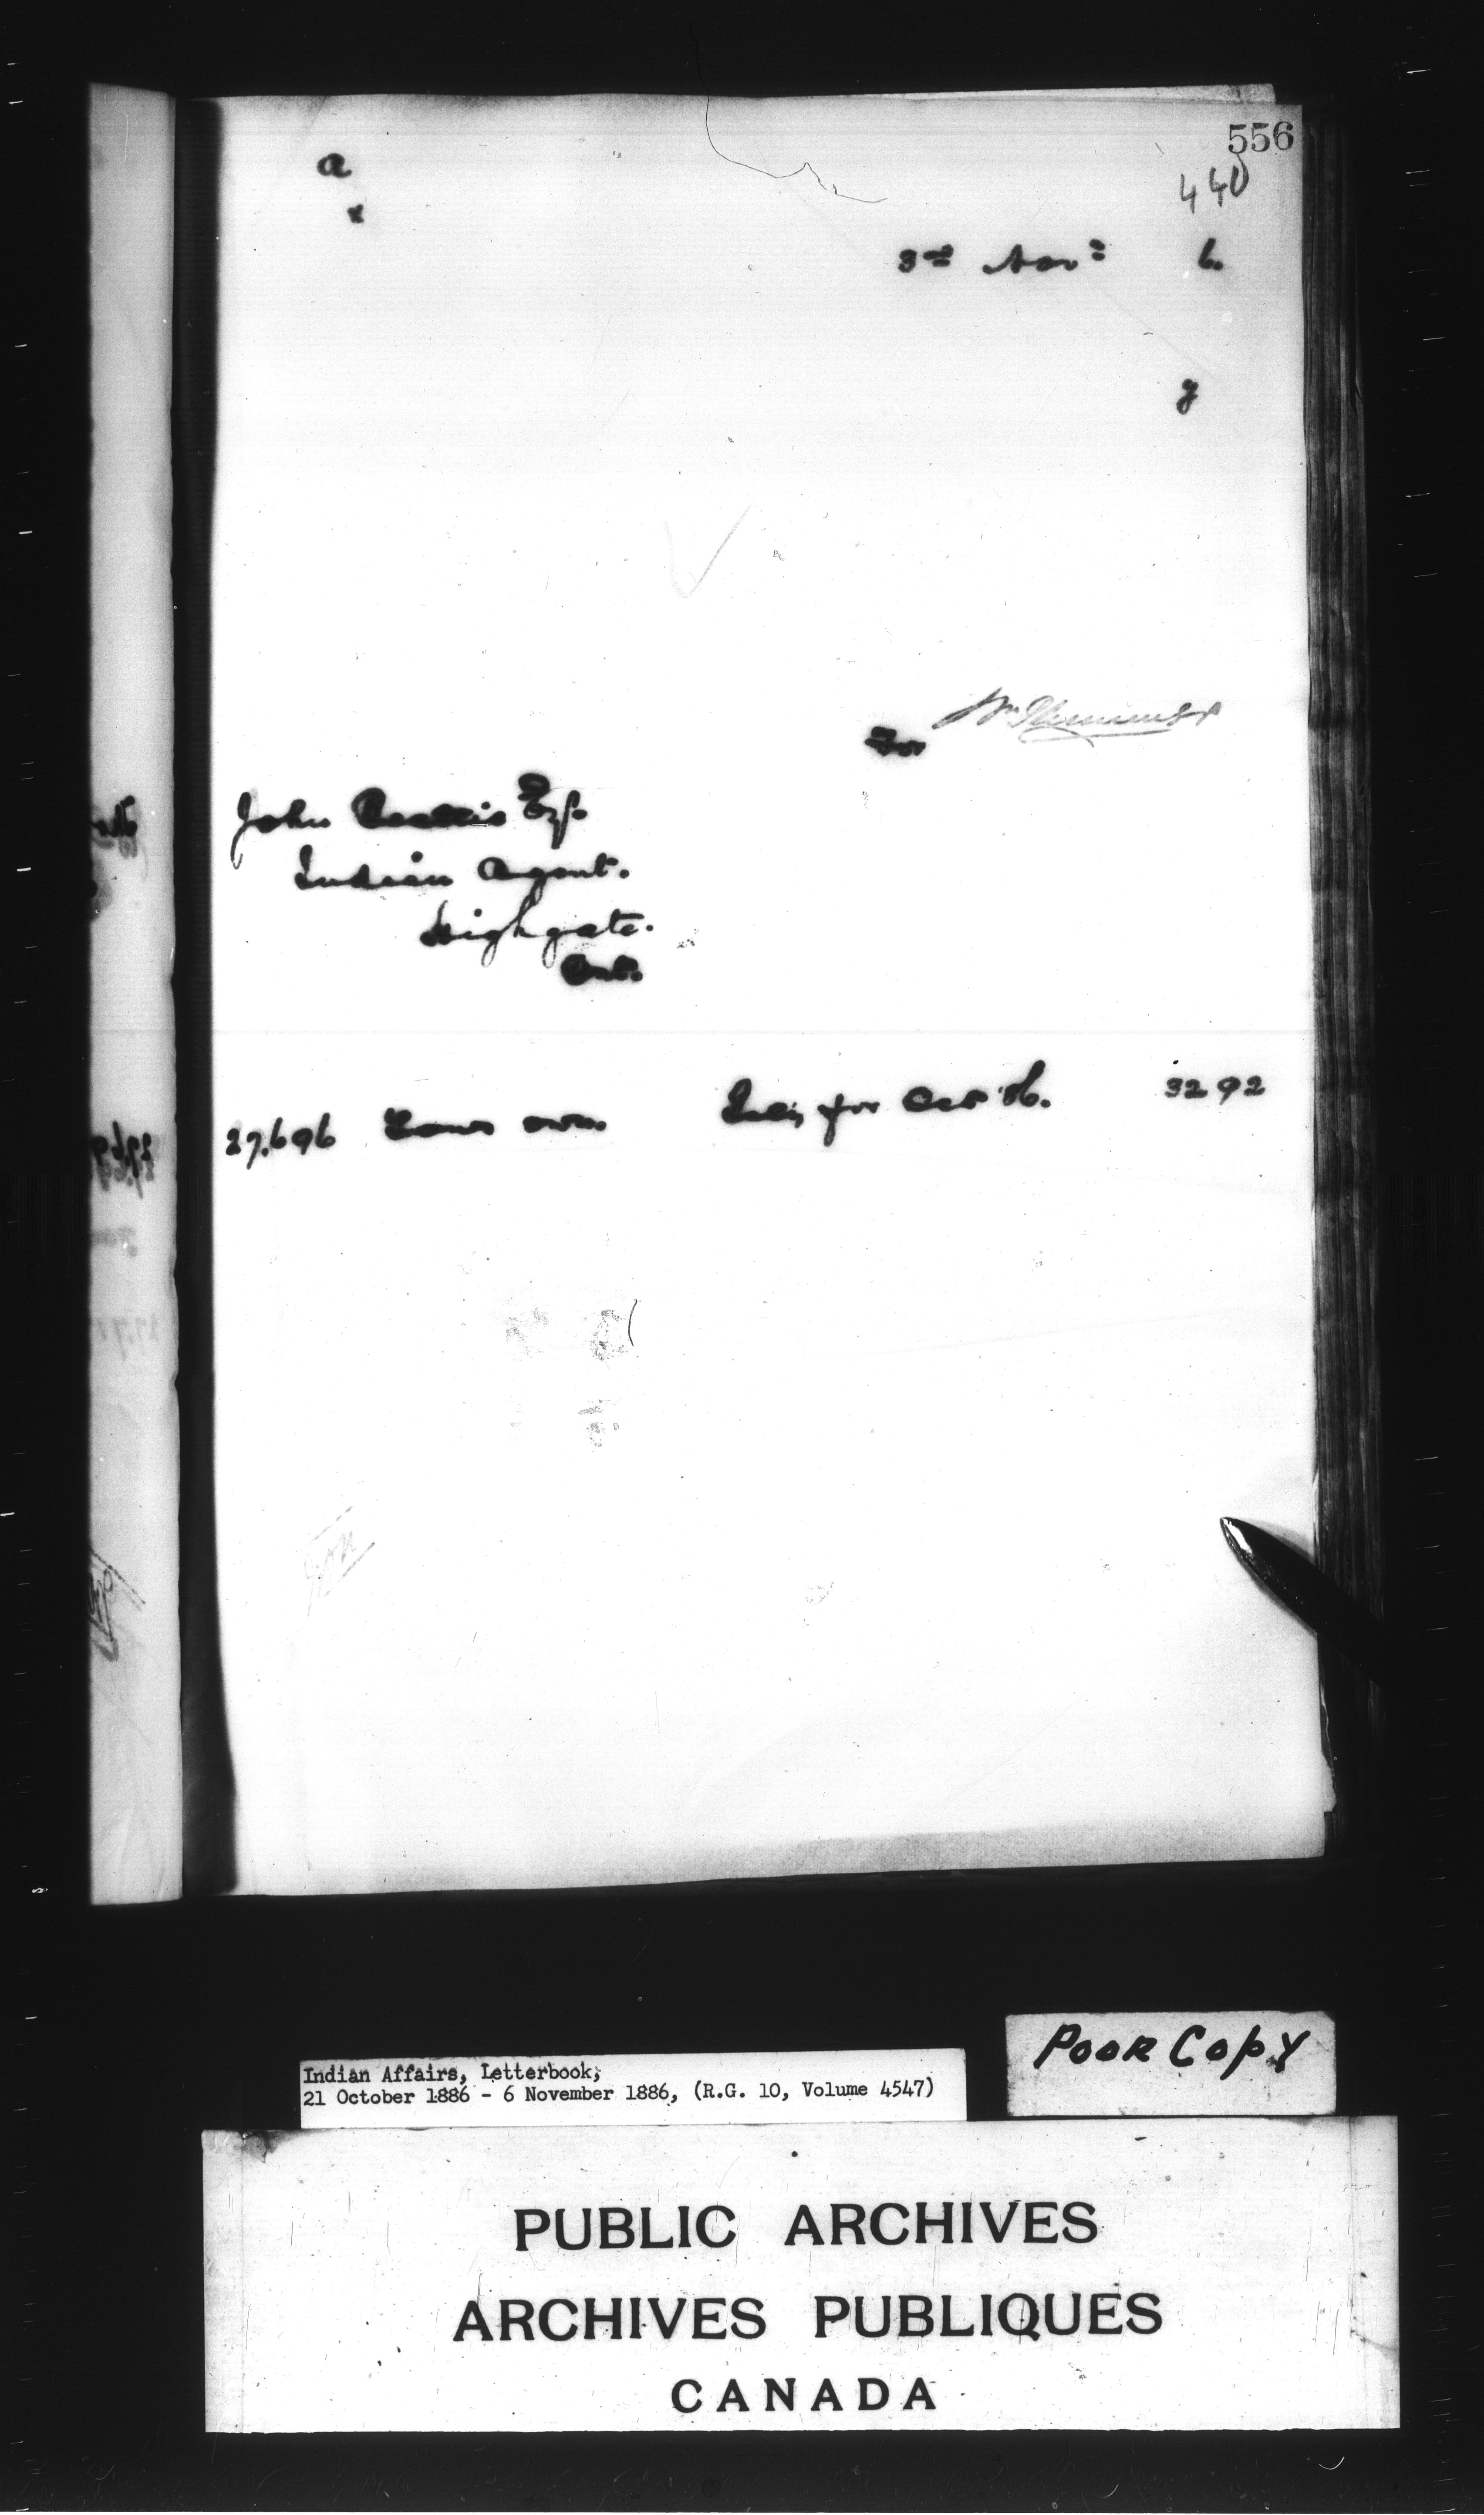 556
440
a
x
3rd Nov. 6.
y
For Wm Plummer
John Beattie Esq.
Indian Agent.
Highgate.
Ont.
27.696 Yours own. Sal'y for Oct 86. 32 92
Poor Copy
Indian Affairs, Letterbook,
21 October 1886 - 6 November 1886, (R.G. 10, Volume 4547)
PUBLIC ARCHIVES
ARCHIVES PUBLIQUES
CANADA